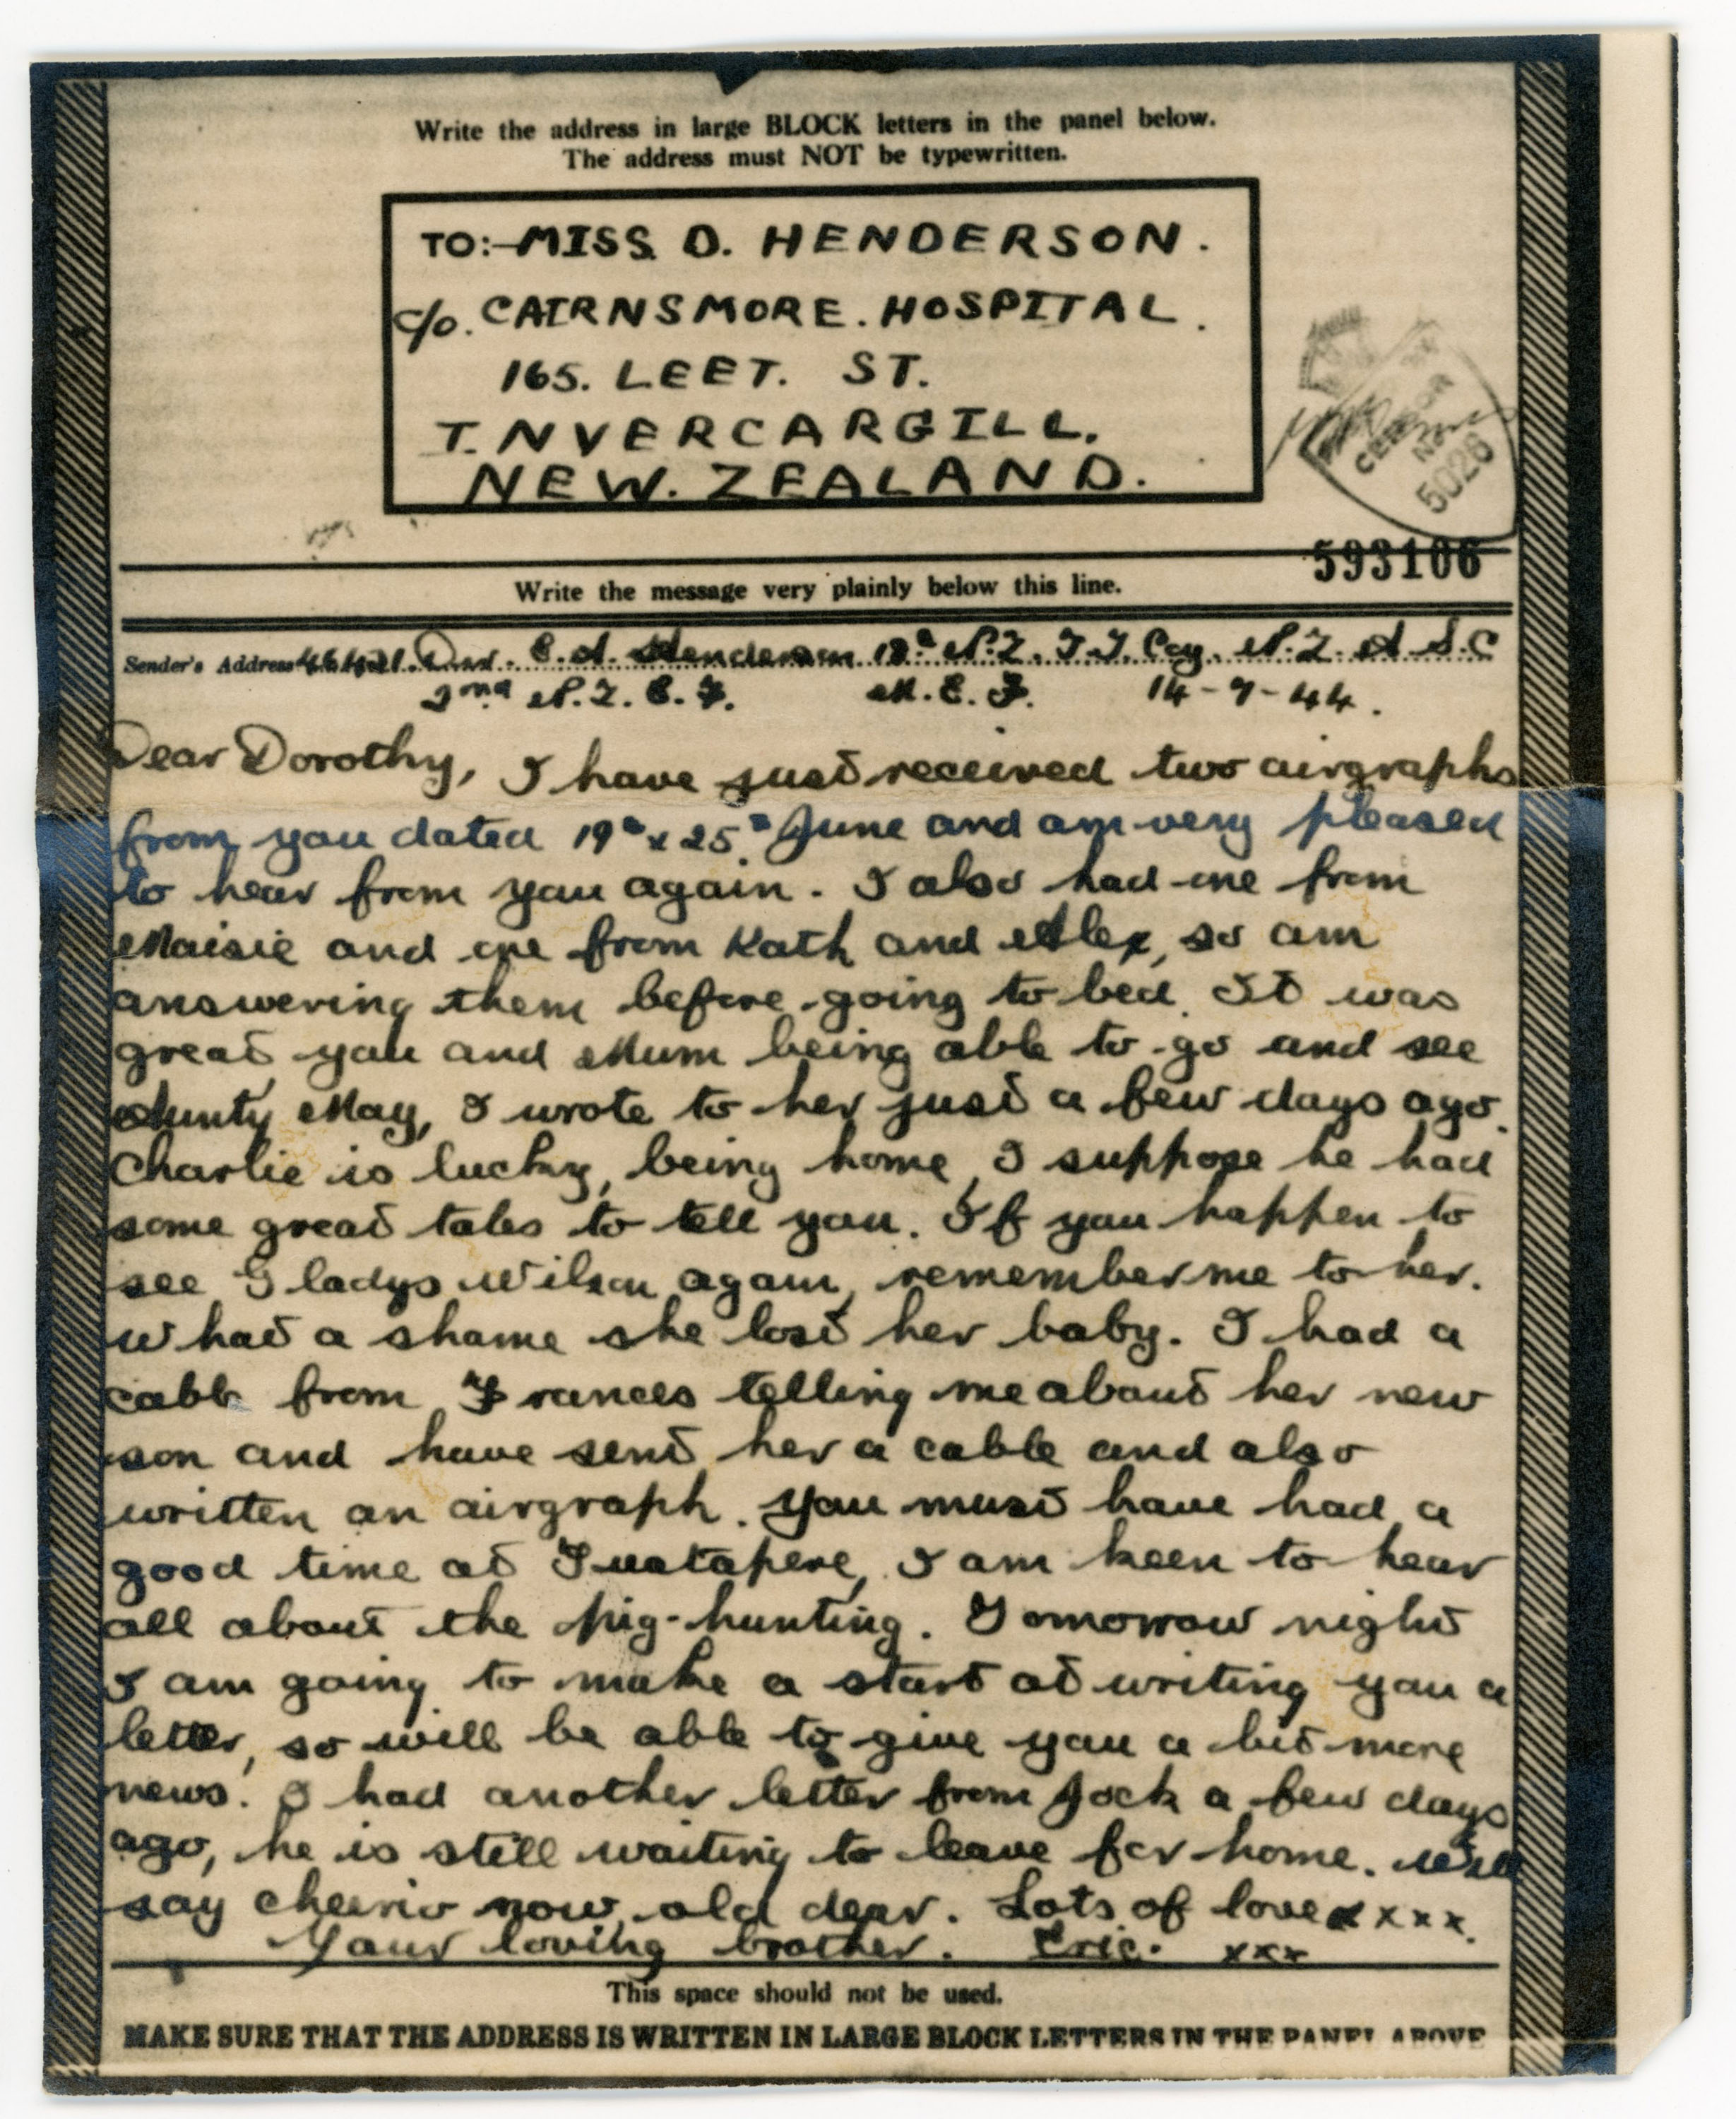 Write the address in large BLOCK letters in the panel below.
The address must NOT be typewritten.
TO:- MISS D. HENDERSON.
c/o. CAIRNSMORE. HOSPITAL.
165. LEET. ST.
INVERCARGILL.
NEW. ZEALAND.
CENSOR
No
5026
593106
Write the message very plainly below this line.
Sender's Address Dvr. E. A. Henderson 18th N.Z. T.T. Coy. N.Z. A S.C
2nd N.Z. E. F. M. E. F. 14-7-44.
Dear Dorothy, I have just received two airgraphs
from you dated 19th & 25th June and am very pleased
to hear from you again. I also had one from
Maisie and one from Kath and Alex, so am
answering them before going to bed. It was
great you and Mum being able to go and see
Aunty May, I wrote to her just a few days ago.
Charlie is lucky, being home, I suppose he had
some great tales to tell you. If you happen to
see Gladys Wilson again, remember me to her.
What a shame she lost her baby. I had a
cable from Frances telling me about her new
son and have sent her a cable and also
written an airgraph. You must have had a
good time at Tuatapere, I am keen to hear
all about the pig-hunting. Tomorrow night
I am going to make a start at writing you a
letter, so will be able to give you a bit more
news. I had another letter from Jock a few days
ago, he is still waiting to leave for home. Will
say cheerio now, old dear. Lots of love xxxx.
Your loving brother. Eric. xxx
This space should not be used.
MAKE SURE THAT THE ADDRESS IS WRITTEN IN LARGE BLOCK LETTERS IN THE PANEL ABOVE